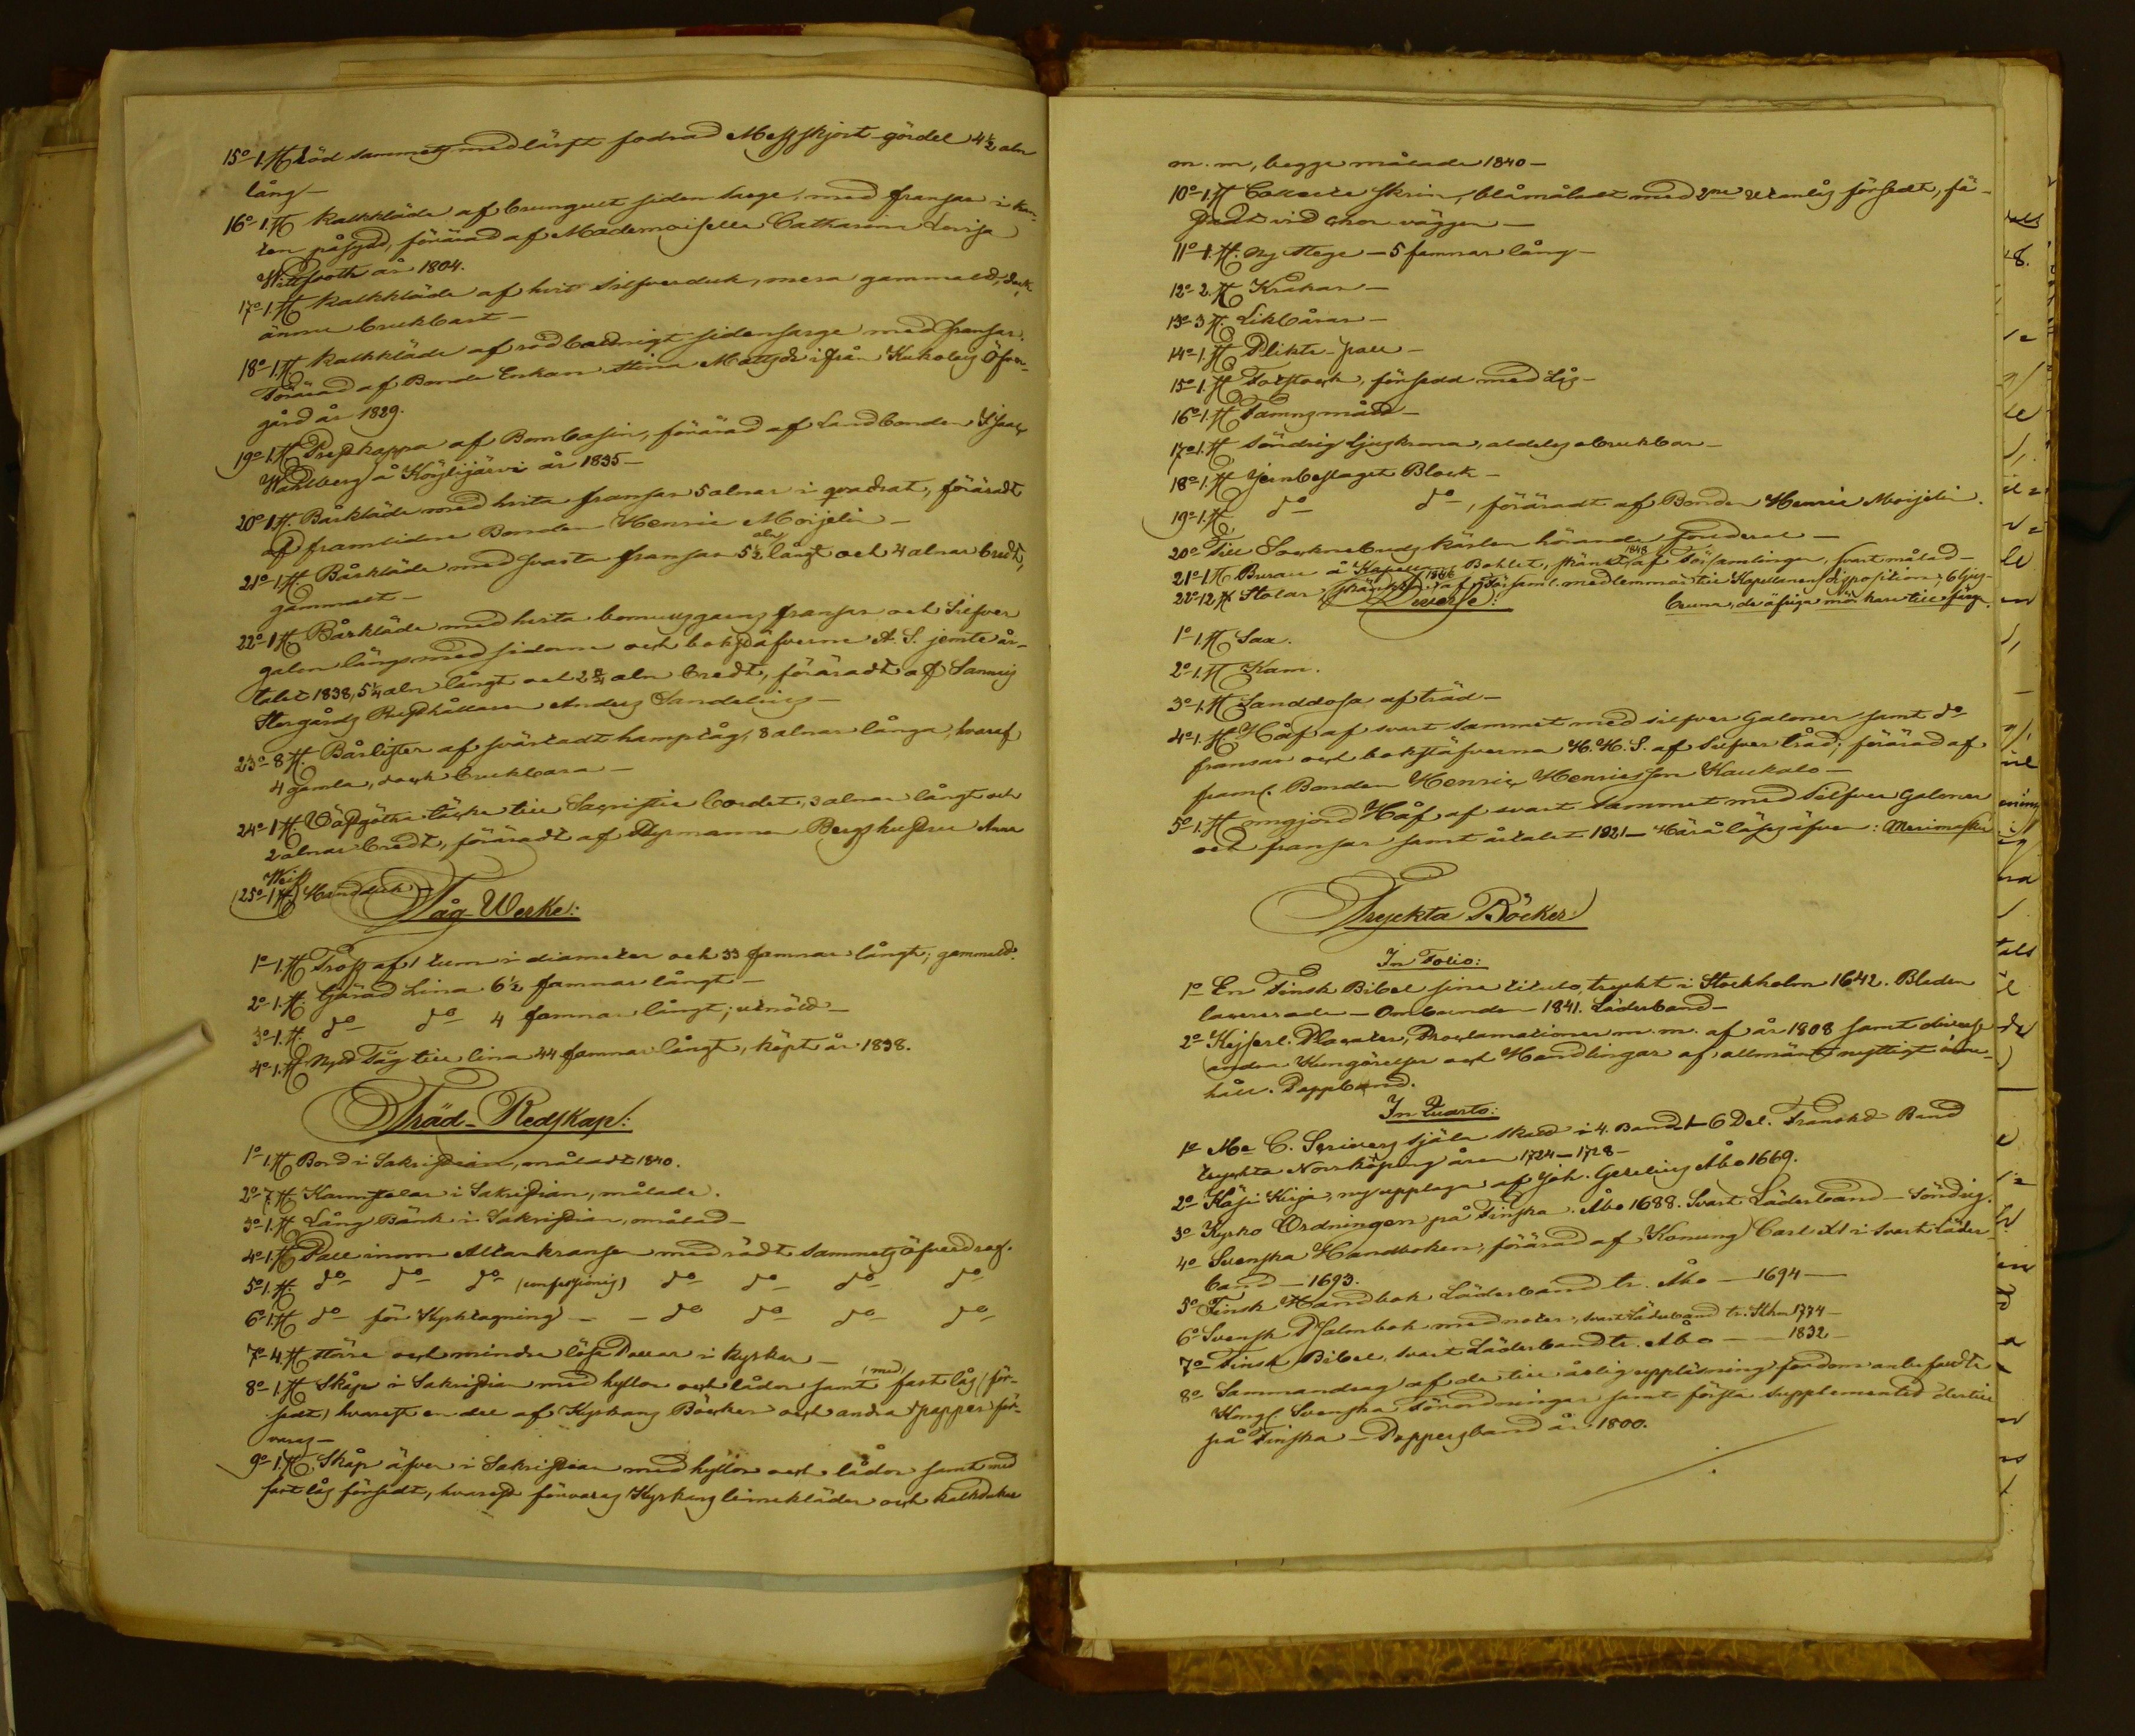 15º 1. St. Röd sammets med lärft fodrad Messskjort-gördel 4½ aln
lång –
16º 1. St. Kalkkläde af brungult siden sarge, med fransar i kan-
ten påsydd, förärad af Mademoiselle Catharina Lovisa
Wittfooth år 1804.
17º 1. St. Kalkkläde af hvit silfverduk, mera gammald, dock
ännu brukbart –
18º 1. St. Kalkkläde af rödbladrigt sidensarge med fransar.
Förärad af Bonde Enkan Stina Mattsdr ifrån Kukolas Öfver-
gård år 1829.
19º 1. St. Prestkappa af Bombasin, förärad af Landbonden Isaac
Wahlberg å Köylijärvi år 1835 –
20º 1 St. Bårkläde med hvita fransar 5 alnar i qvadrat, föräradt
af framlidne Bonden Henric Moijelin –
21º 1 St. Bårkläde med svarta fransar 5½ aln långt och 4 alnar bredt,
gammalt –
22º 1 St. Bårkläde med hvita bomullsgarns fransar och Silfver
galon längs med sidorne och bokstäfverne A. S. jemte år-
talet 1838, 5¼ aln långt och 2¾ aln bredt, föräradt af
Storgårds Rusthållaren Anders Sandelius –
23º 8 St. Bårlister af svärtadt hamptåg, 8 alnar långa, hvaraf
4 gamla, dock brukbara –
24º 1 St. Wäfgötha täcke till Sacristie bordet, 3 alnar långt och
2 alnar bredt, föräradt af Styrmannen Bergs hustru Anna
Weiss
25º 1 St. Handduk –
Tåg-Werke:
1º 1. St. Tross af 1 tum i diameter och 33 famnar långt; gammald.
2º 1. St. tjärad Lina 6½ famnar långt –
3º 1. St. dº dº 4 famnar långt; utnött –
4º 1. St. Nytt Tåg till lina 44 famnar långt, köpt år 1838.
Träd-Redskap:
1º 1. St. Bord i Sakristian, måladt 1840.
2º 7. St. Karmstolar i Sakristian, målade.
3º 1. St. Lång Bänk i Sakristian, målad –
4º 1. St. Pall inom Altarkransen med rödt sammets öfverdrag.
5º 1. St. dº dº dº (confessionis) dº dº dº dº
6º 1. St. dº för Kyrktagning – – dº dº dº dº
7º 4. St. större och mindre löse Pallar i kyrkan –
8º 1. St. Skåp i Sakristian med hyllor och lådor samt med fast lås för-
sedt, hvarest en del af Kyrkans Böcker och andra papper för-
varas –
9º 1. St. Skåp äfven i Sakristian med hyllor och lådor samt med
fast lås försedt, hvarest förvaras Kyrkans linnekläder och kalkdukar
m. m, begge målade 1840 –
10º 1. St. Collecte skrin, blåmåladt med 2ne utanlås försedt, fä-
stadt vid chor väggen –
11º 1. St. Ny stege – 5 famnar lång –
12º 2. St. Krakar –
13º 3 St. Likbårar –
14º 1. St. Plikte-pall –
15º 1. St. Fotstock, försedd med Lås –
16º 1. St. Famnsmått –
17º 1. St. Söndrig ljuskrona, aldeles obrukbar –
18º 1. St. Jernbeslaget Block –
19º 1. St. dº dº, föräradt af Bonden Henric Moijelin.
20º Till Socknebuds kärlen hörande fouderal –
21º 1 St. Buran å Kapellans Bohlet, skänkt 1848 af Församlingen, svart målad –
22º 12 St. Stolar skänkte 1846 af Församl. medlemmar till Kapellanens disposition; 6 ljus-
bruna, de öfriga mörkare till färgen.
Diverse:
1º 1. St. Sax.
2º 1. St. Kam.
3º 1. St. Sanddosa af träd –
4º 1. St. Håf af svart sammet med silfver galoner samt dº
fransar och bokstäfverna H. H. S. af silfver tråd; förärad af
framl. Bonden Henric Henricsson Kaukolo –
5º 1. St. omgjord Håf af svart sammet med silfver galoner
och fransar samt årtalet 1821 – Härå läses äfven:
Tryckta Böcker:
In Folio:
1º En Finsk Bibel sine titulo, tryckt i Stockholm 1642. Bladen
lacererade – Ombunden 1841. Läderband –
2º Kejserl. Placater, Proclamationer m. m. af år 1808 samt diverse
andra Kungörelser och Handlingar af allmänt nyttigt inne-
håll. Pappband.
In Quarto:
1º Mr C. Scrivers själa skatt i 4. Band 1–6 Del. Franskt Band
tryckta Norrköping åren 1724–1728 –
2º Käsi Kirja, ny upplaga af Joh. Gezelius Åbo 1669.
3º Kyrko Ordningen på Finska. Åbo 1688. Svart Läderband – söndrig.
4º Svenska Handboken, förärad af Konung Carl XI i svart Läder-
band – 1693.
5º Finsk Handbok Läderband tr. Åbo – 1694 –
6º Svensk Psalmbok med noter, svart Läderband tr. Sthm 1774 –
7º Finsk Bibel, svart Läderband tr. Åbo – – 1832 –
8º Sammandrag af de till årlig uppläsning fordom anbefallte
Kongl. Svenska Förordningar samt första supplementet dertill
på Finska – Pappersband år 1800.